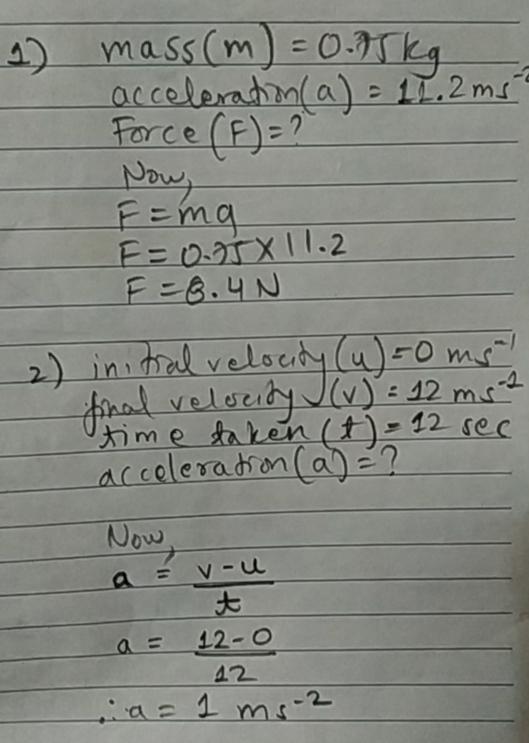 1) mass(m) = 0.75kg
acceleration(a) = 11.2 ms⁻²
Force (F) = ?
Now,
F = mg
F = 0.75 × 11.2
F = 8.4 N
2) initial velocity (u) = 0 ms⁻¹
final velocity (v) = 12 ms⁻¹
time taken (t) = 12 sec
acceleration (a) = ?
Now,
a = v-u
t
a = 12-0
12
∴ a = 1 ms⁻²